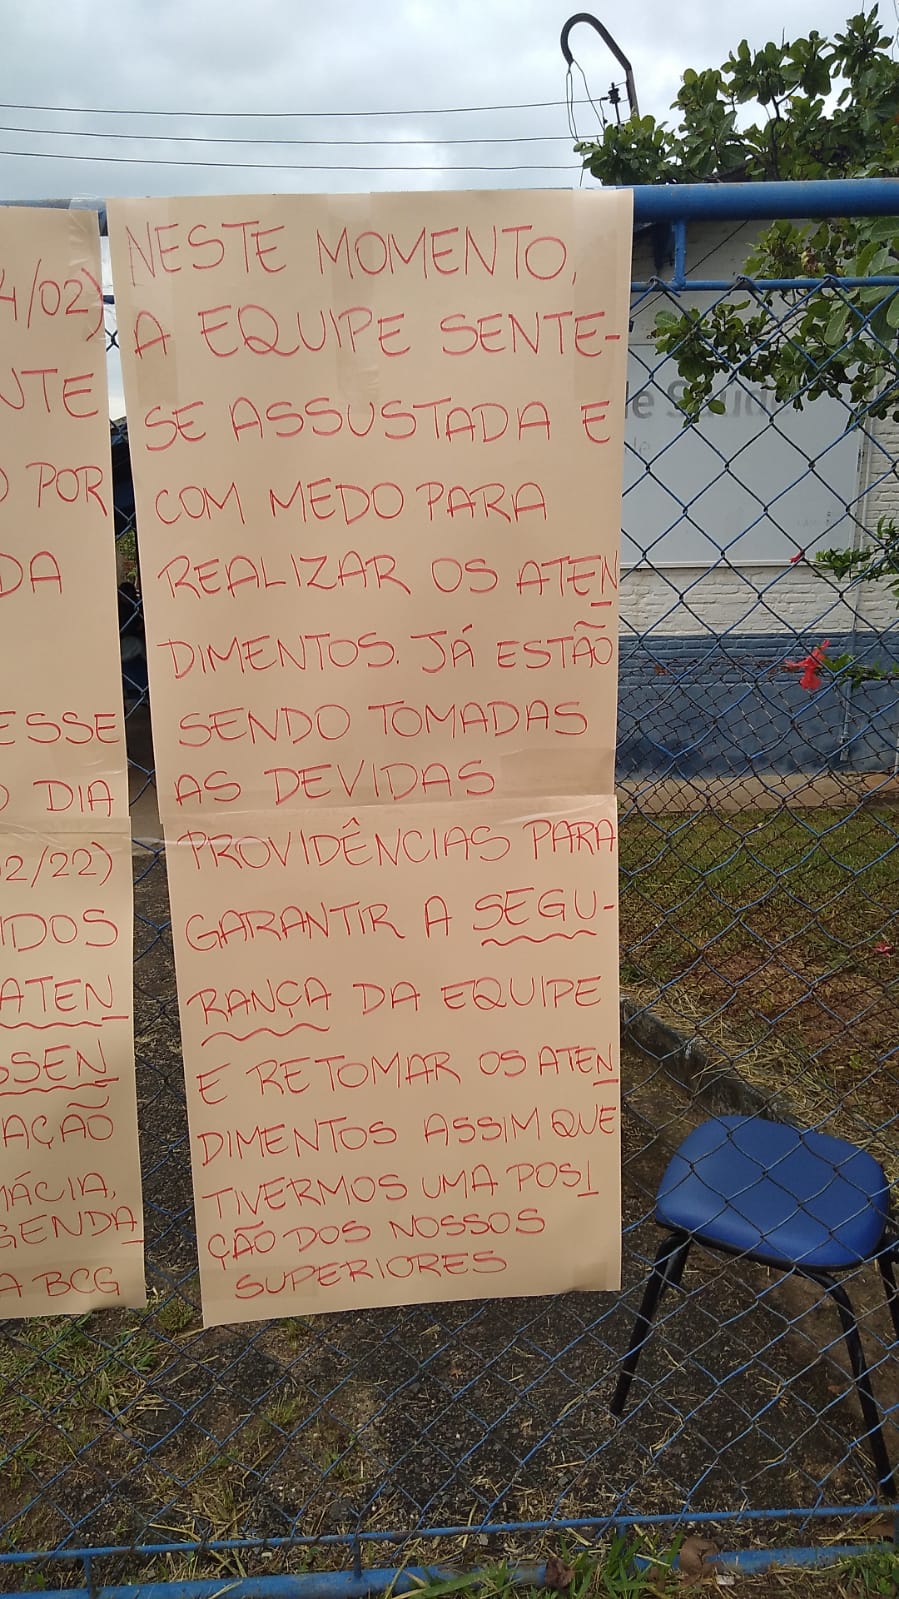 4/02)
NTE
O POR
DA
ESSE
O DIA
02/22)
IDOS
ATEN
SSEN
AÇÃO
MÁCIA,
GENDA
A BCG
NESTE MOMENTO,
A EQUIPE SENTE-
SE ASSUSTADA E
COM MEDO PARA
REALIZAR OS ATEN
DIMENTOS. JÁ ESTÃO
SENDO TOMADAS
AS DEVIDAS
PROVIDÊNCIAS PARA
GARANTIR A SEGU-
RANÇA DA EQUIPE
E RETOMAR OS ATEN
DIMENTOS ASSIM QUE
TIVERMOS UMA POSI
ÇÃO DOS NOSSOS
SUPERIORES
de Saúde
de